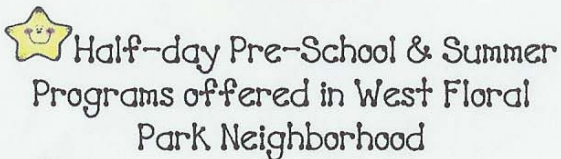 Half-day Pre-School & Summer
Programs offered in West Floral
Park Neighborhood